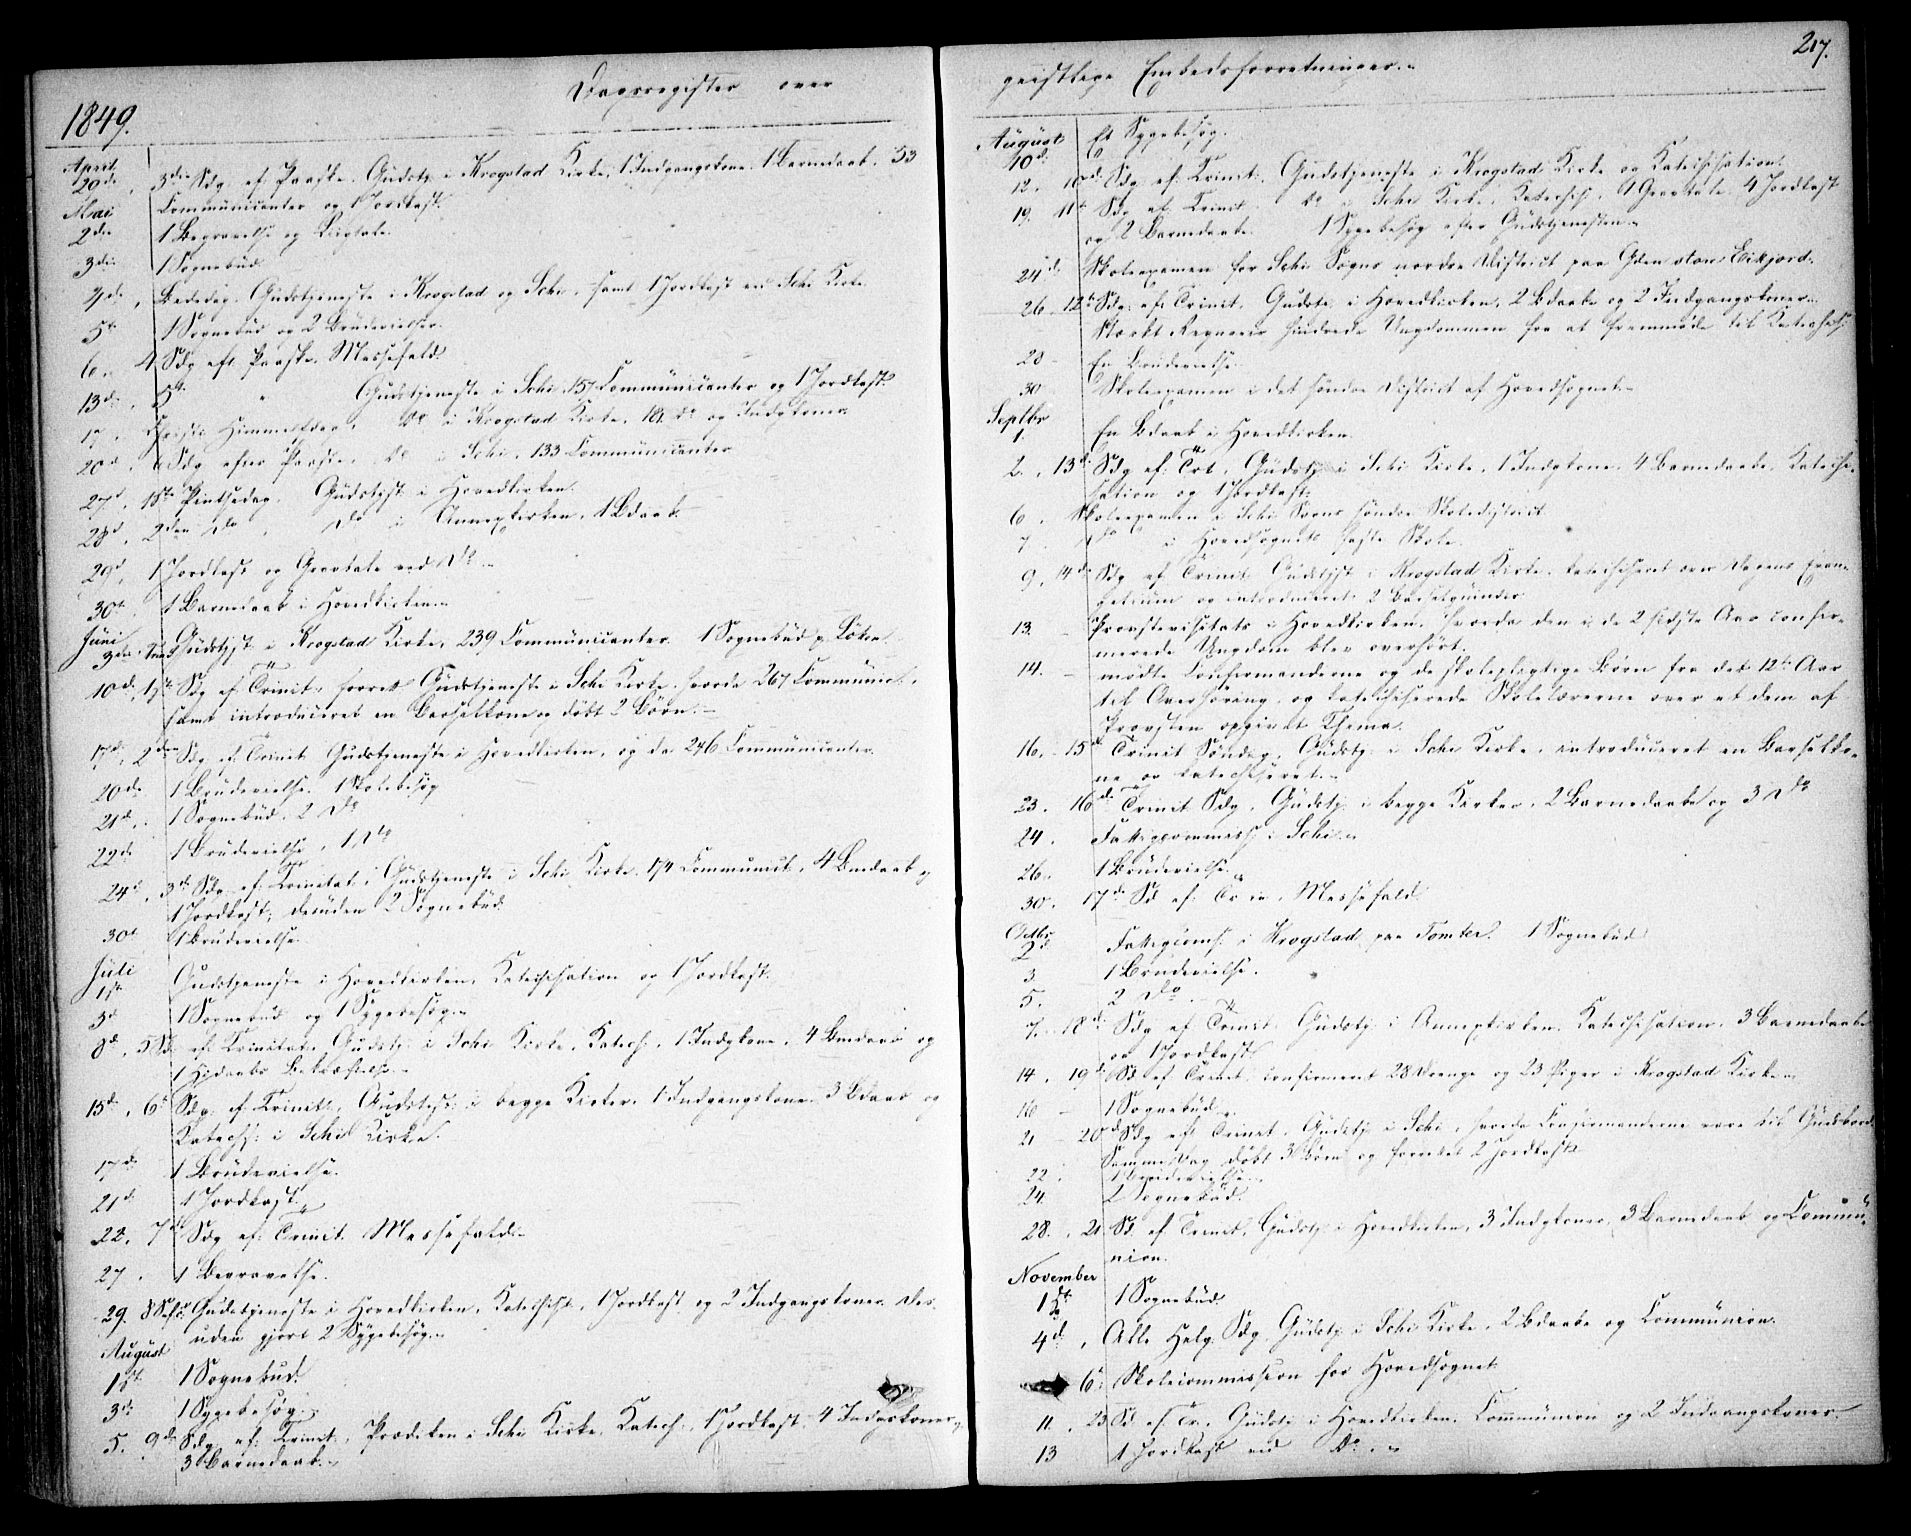 Dagsregister over
1849.
April
20de 3die Sdg. ef. Paaske. Gudstj. i Krogstad Kirke, 1 Indgangskone. 1 Barnedaab. 33
Communicanter og 1 Jordkast.
Mai
2den 1 Begravelse og Ligtale.
3die 1 Sognebud.
Bededag. Gudstjeneste i Krogstad og Schi, samt 1 Jordkast ved Schi Kirke.
5te 1 Sognebud og 2 Brudevielser.
6. 4 Sdg eft Paaske. Messefald.
13de 5te " Gudstjeneste i Schi, 157 Communicanter og 1 Jordkast.
17. Christi Himmelfdag. Do i Krogstad Kirke, 181 Do og Indgkone.
20de Sdg efter Paaske. Do i Schi, 133 Communicanter
27d. 1ste Pintsedag. Gudstjst i Hovedkirken.
28d. 2den Do, Do i Annexkirken, 1 Bdaab.
29d. 1 Jordkast og Gravtale ved Do.
30te 1 Barnedaab i Hovedkirken.
Juni
3die Gudstjst i Krogstad Kirke, 239 Communicanter. 1 Sognebud p.
10d. 1ste Sdg ef. Trinit. forrett Gudstjeneste i Schi Kirke, hvorde 267 Communic.,
samt introduceret en Barselkone og döbt 2 Börn.
17d. 2den Sdg. ef. Trinit. Gudstjeneste i Hovedkirken, og da 246 Communicanter.
20de 1 Brudevielse. 1 Skolebesög
21d. 1 Sognebud. 2 Do
22de 1 Brudevielse, 1 Do
24d. 3de Sdg. ef. Trinitat: Gudstjeneste i Schi Kirke. 174 Communict. 4 Bnedaab og
1 Jordkast; desuden 2 Sognebud.
30te 1 Brudevielse.
Juli
1ste Gudstjeneste i Hovedkirken, Katechisation og 1 Jordkast.
3d 1 Sognebud og 1 Sygebesög.
8d. 5 Sd. ef. Trinitat. Gudstj: i Schi Kirke, Katech:, 1 Indgkone, 4 Bnedaab og
1 Hjdaabs Bekræftelse.
15d. 6d Sdg. ef. Trinit., Gudstjst: i begge Kirker. 1 Indgangskone 3 Bdaab og
Katechs: i Schi Kirke.
17de 1 Brudevielse.
21d. 1 Jordkast.
22. 7d Sdg. ef: Trinit. Messefald.
27. 1 Begravelse.
29. 8 Gudstjeneste i Hovedkirken, Katechist., 1 Jordkast og 2 Indgangskoner. Des-
uden gjort 2 Sygebesög.
August
1ste 1 Sognebud.
3de 1 Sygebesög.
5. 9d: Sdg. ef: Trinit:, Prædiken i Schi Kirke. Katech:, 1 Jordkast, 4 Indgskoner,
3 Barnedaab.
217.
geistlige Embedsforretninger.
August
10d. Et Sygebesög.
12. 10d: Sdg ef: Trinit:. Gudstjeneste i Krogstad Kirke og Katechisation.
19. 11te Sdg ef. Trinit. Do i Schi Kirke, Katechis, 1 Gravtale. 4 Jordkast
og 2 Barnedaabe. 1 Sygebesög efter Gudstjenesten.
24d. Skoleexamen for Schi Sogns nordre District paa Gden store Eikjord.
26. 12te Sdg: ef. Trinit. Gudstj. i Hovedkirken, 2 Bdaabe og 2 Indgangskoner.
Stærkt Regnveir hindrede Ungdommen fra at fremmöde til Katechis.
28 En Brudevielse.
30 Skoleexamen i det söndre District af Hovedsognet.
Septbr
1. En Bdaab i Hovedkirken.
2. 13de Sdg ef: Trt. Gudstj i Schi Kirke, 1 Indgkone, 4 Barnedaabe, Kateche-
sation og 1 Jordkast.
6. Skoleexamen i Schi Sogns söndre Skoledistrict.
7. Do i Hovedsognets faste Skole.
9. 14de Sdg ef. Trinit. Gudstjst i Krogstad Kirke. katechiseret over Dagens Evan-
gelium og introduceret 2 Barselqvinder
13. Provstevisitats i Hovedkirken, hvorde den i de 2 sidste Aar confir-
merede Ungdom blev overhört.
14. mödte Confirmanderne og de skolepligtige Börn fra det 12te Aar
til Overhöring, og katechiserede Skolelærerne over et dem af
Provsten opgivet Thema.
16. 15d Trinit Söndag. Gudstj. i Schi Kirke, introduceret en Barselko-
ne og katechiseret.
23. 16d. Trinit Sdg. Gudstj i begge Kirker. 2 Barnedaabe og 3 Do
24. Fattigcommiss: i Schi.
26. 1 Brudevielse.
30. 17de Sd ef: Trin. Messefald.
Octbr
2d Fattigcoms: i Krogstad paa Tomter. 1 Sognebud
3 1 Brudevielse.
5. 2 Do
7. 18d: Sdg ef Trinit. Gudstj i Annexkirken. Katechisation. 3 Barnedaabe
og 1 Jordkast
14. 19d Sd ef. Trinit. confirmeret 28 Drenge og 23 Piger i Krogstad Kirke.
16 1 Sognebud.
21 20d Sdg eft Trinit. Gudstj i Schi, hvorde Confirmanderne vare til Gudsbord
Samme Dag döbt 3 Börn og forrettet 2 Jordkast
22. 1 Brudevielse.
24. 2 Sognebud.
28. 21 Sd. ef Trinit. Gudstj i Hovedkirken, 3 Indgkoner, 3 Barnedaab og Commu-
nion.
November
1ste 1 Sognebud.
4d. Alle Helg. Sdg. Gudstj i Schi Kirke, 2 Bdaabe og Communion.
6. Skolecommission for Hovedsognet
11. 23 Sd ef. Tr. Gudstj i Hovedkirken. Communion og 2 Indgangskoner.
13 1 Jordkast ved Do.